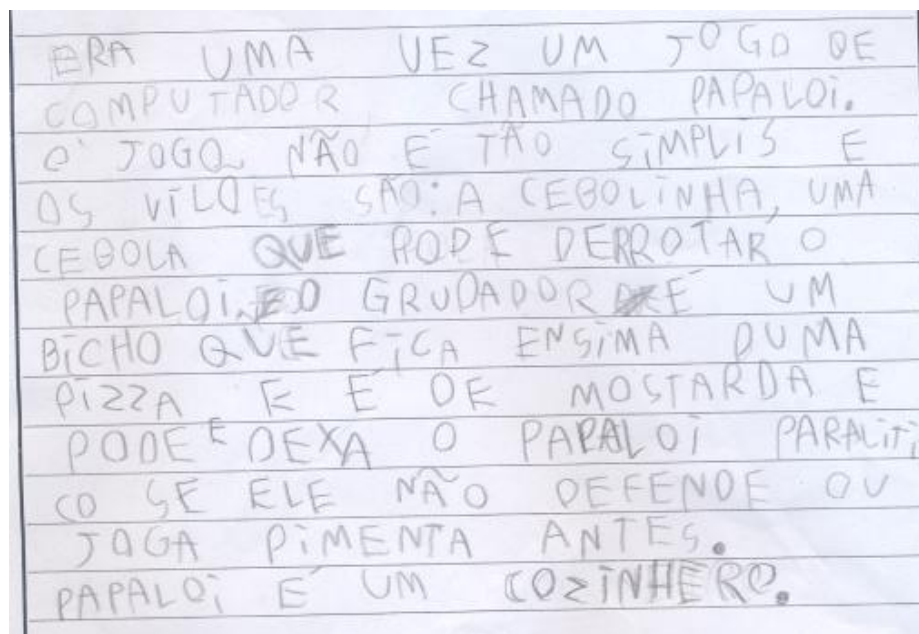 ERA UMA VEZ UM JOGO DE
COMPUTADOR CHAMADO PAPALOI.
O JOGO NÃO É TÃO SIMPLIS E
OS VILOES SÃO: A CEBOLINHA, UMA
CEBOLA QUE PODE DERROTAR O
PAPALOI. O GRUDADOR É UM
BICHO QUE FICA ENSIMA DUMA
PIZZA E É DE MOSTARDA E
PODE DEXA O PAPALOI PARALITI
CO SE ELE NÃO DEFENDE OU
JOGA PIMENTA ANTES.
PAPALOI É UM COZINHERO.